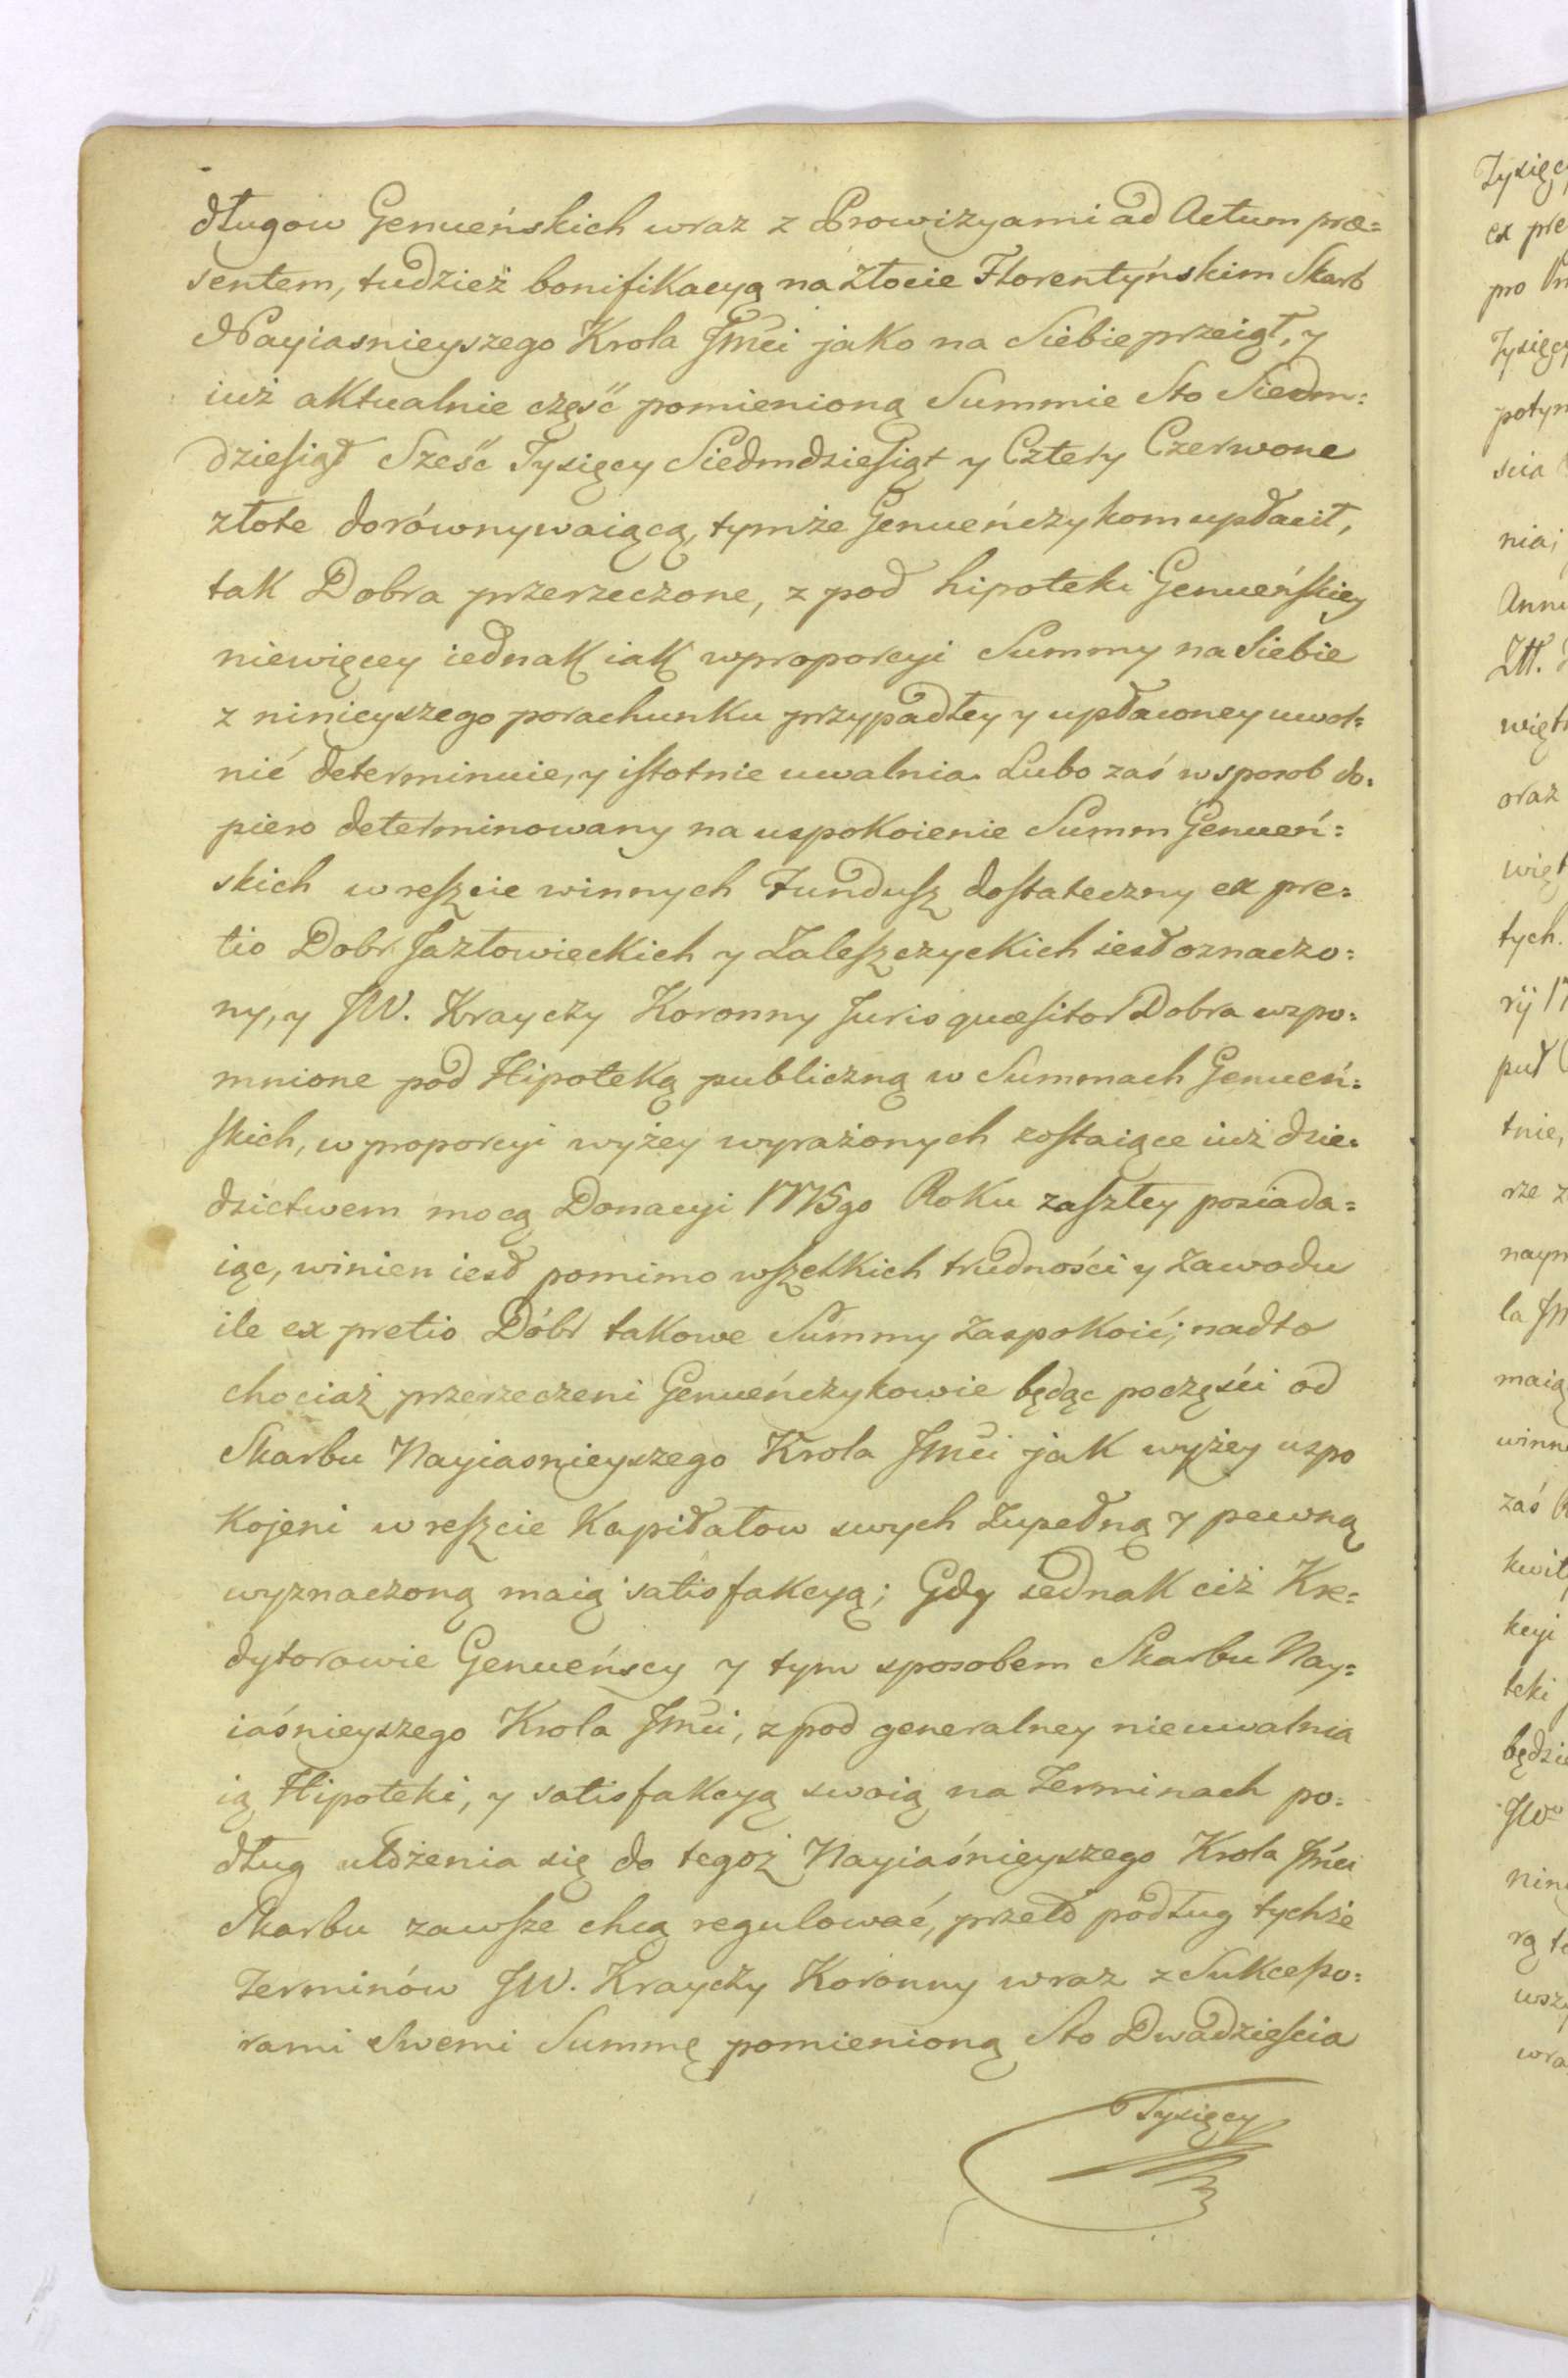 długow Genueńskich wraz z Prowizyami ad Actum præ=
sentem, tudzież bonifikacyą na złocie Florentyńskim Skarb
Nayiasnieyszego Krola Jmci jako na Siebie przeiął, y
iuż aktualnie część pomienioną Summie Sto Siedm=
dziesiąt Sześć Tysięcy Siedmdziesiąt y Cztery Czerwone
złote dorównywaiącą, tymże Genueńczykom upłacił,
tak Dobra przerzeczone, z pod hipoteki Genueńskiey
niewięcey iednak iak wproporcyi Summy na Siebie
z ninieyszego porachunku przypadłey y upłaconey uwol=
nić determinuie, y istotnie uwalnia. Lubo zaś w sposob do=
piero determinowany na uspokoienie Summ Genueń=
skich w reszcie winnych Fundusz dostateczny ex pre=
tio Dobr Jazłowieckich y Zaleszczyckich iest oznaczo=
ny, y JW. Krayczy Koronny Juris quæsitor Dobra wzpo=
mnione pod Hipoteką publiczną w Summach Genueń=
skich, w proporcyi wyżey wyrażonych zostaiące iuż dzie=
dzictwem mocą Donacyi 1775go Roku zaszłey posiada=
iąc, winien iest pomimo wszelkich trudności y zawodu
ile ex pretio Dóbr takowe Summy zaspokoić; nadto
chociaż przerzeczeni Genueńczykowie będąc poczęści od
Skarbu Nayiasnieyszego Krola Jmci jak wyżey uspo
kojeni w reszcie Kapitałow swych zupełną y pewną
wyznaczoną maią satisfakcyą; Gdy iednak ciż Kre=
dytorowie Genueńscy y tym sposobem Skarbu Nay=
iaśnieyszego Krola Jmci, z pod generalney nieuwalnia
ią Hipoteki, y satisfakcyą swoią na Terminach po=
dług ułożenia się do tegoż Nayiaśnieyszego Krola Jmci
Skarbu zawsze chcą regulować, przeto podług tychże
Terminów JW. Krayczy Koronny wraz z Sukcesso=
rami Swemi Summę pomienioną Sto Dwadzieścia
Tysięcy